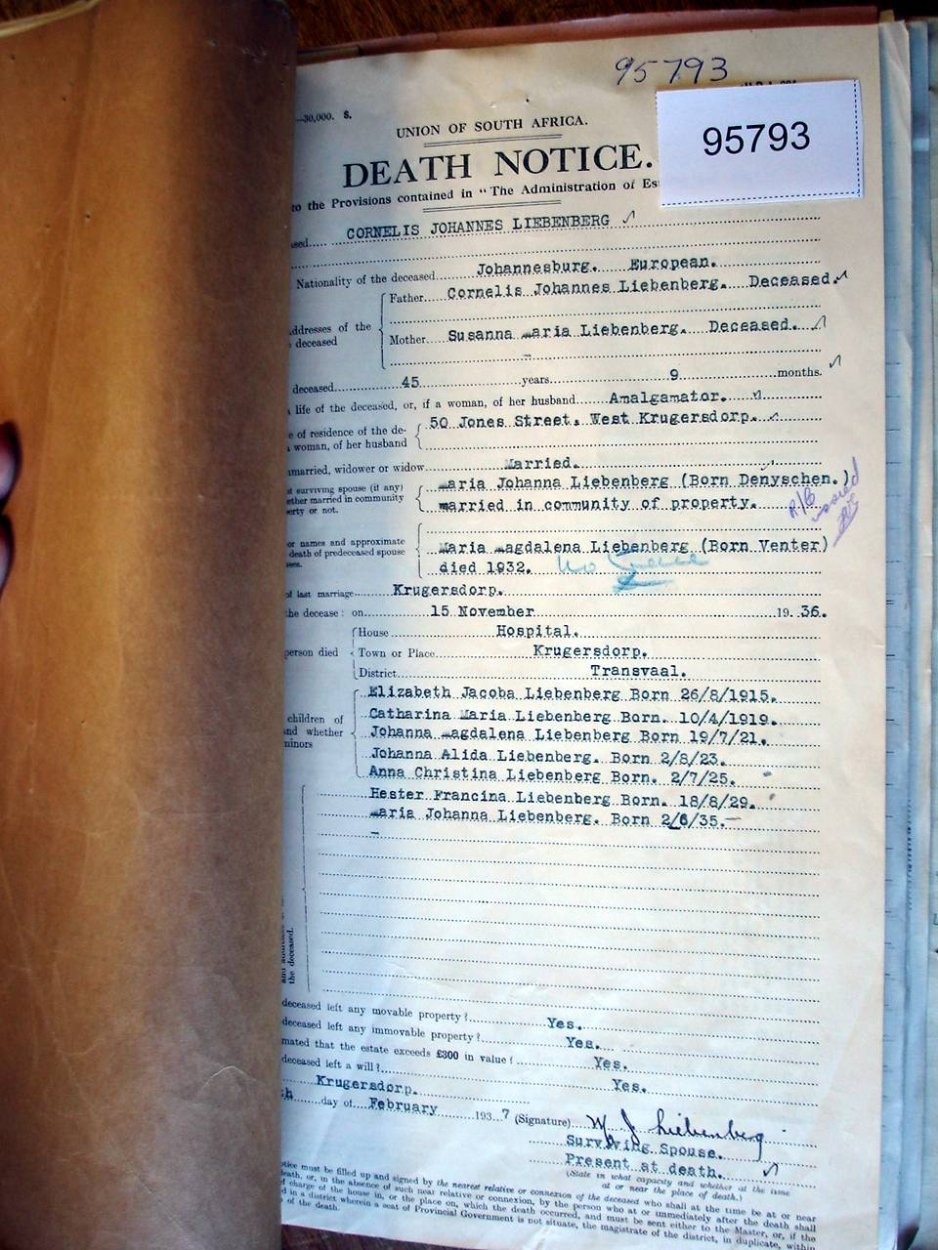 95793
95793
—30,000. S.
UNION OF SOUTH AFRICA.
DEATH NOTICE.
to the Provisions contained in "The Administration of Es
sed CORNELIS JOHANNES LIEBENBERG
Nationality of the deceased Johannesburg. European.
Father Cornelis Johannes Liebenberg. Deceased.
ddresses of the
deceased
Mother Susanna Maria Liebenberg. Deceased.
deceased 45 years 9 months.
life of the deceased, or, if a woman, of her husband Amalgamator.
e of residence of the de- 50 Jones Street, West Krugersdorp.
woman, of her husband
married, widower or widow Married.
surviving spouse (if any) Maria Johanna Liebenberg (Born Denyschen.)
ether married in community married in community of property.
erty or not.
issued
or names and approximate
death of predeceased spouse Maria Magdalena Liebenberg (Born Venter)
died 1932. No
of last marriage Krugersdorp.
the decease: on 15 November 1936.
House Hospital.
person died Town or Place Krugersdorp.
District Transvaal.
Elizabeth Jacoba Liebenberg Born 26/8/1915.
children of Catharina Maria Liebenberg Born. 10/4/1919.
nd whether Johanna Magdalena Liebenberg Born 19/7/21.
minors
Johanna Alida Liebenberg. Born 2/8/23.
Anna Christina Liebenberg Born. 2/7/25.
Hester Francina Liebenberg Born. 18/8/29.
Maria Johanna Liebenberg. Born 2/6/35.
the deceased.
deceased left any movable property? Yes.
deceased left any immovable property? Yes.
mated that the estate exceeds £300 in value? Yes.
deceased left a will? Yes.
Krugersdorp.
th day of February 1937 (Signature) M J Liebenberg
Surviving Spouse.
Present at death.
(State in what capacity and whether at the time
at or near the place of death.)
otice must be filled up and signed by the nearest relative or connexion of the deceased who shall at the time be at or near
death, or, in the absence of such near relative or connexion, by the person who at or immediately after the death shall
charge of the house in, or the place on, which the death occurred, and must be sent either to the Master, or, if the
d in a district wherein a seat of Provincial Government is not situate, the magistrate of the district, in duplicate, within
of the death.